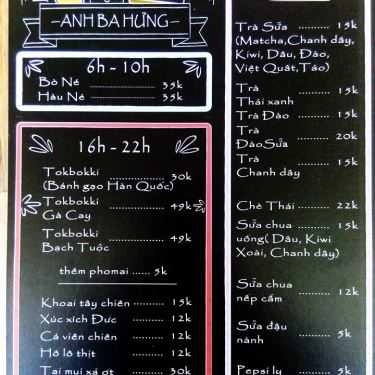 -ANH BA HƯNG-
6h - 10h
Bò Né ........ 35k
Hàu Né ........ 35k
16h - 22h
Tokbokki ........ 30k
(Bánh gạo Hàn Quốc)
Tokbokki ........ 49k
Gà Cay
Tokbokki
Bạch Tuộc ........ 49k
thêm phomai ...... 5k
Khoai tây chiên ........ 15k
Xúc xích Đức ........ 12k
Cá viên chiên ........ 12k
Hồ lô thịt ........ 12k
Tai mui xá ớt ........ 30k
Trà Sữa ........ 15k
(Matcha,Chanh dây,
Kiwi, Dâu, Đào,
Việt Quất,Táo)
Trà ........ 15k
Thái xanh
Trà Đào ........ 15k
Trà ........ 20k
ĐàoSữa
Trà ........ 15k
Chanh dây
Chè Thái ........ 22k
Sữa chua ........ 15k
uống( Dâu, Kiwi
Xoài, Chanh dây)
Sữa chua
nếp cẩm ........ 12k
Sữa đậu
nành ........ 5k
Pepsi ly ........ 5k